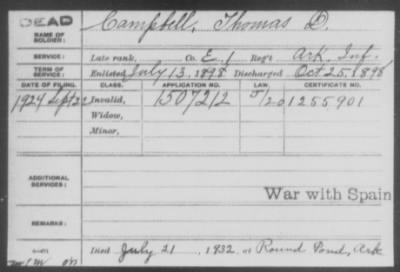 DEAD
NAME OF SOLDIER: Campbell, Thomas D.
SERVICE: Late rank, Co. E, 1 Reg't Ark. Inf.
TERM OF SERVICE: Enlisted July 13, 1898 Discharged Oct 25, 1898
DATE OF FILING. CLASS. APPLICATION NO. LAW. CERTIFICATE NO.
1924 Sept 22 Invalid, 1507212 201255901
Widow,
Minor,
ADDITIONAL SERVICES:
War with Spain
REMARKS:
Died July 21, 1932, at Round Pond, Ark